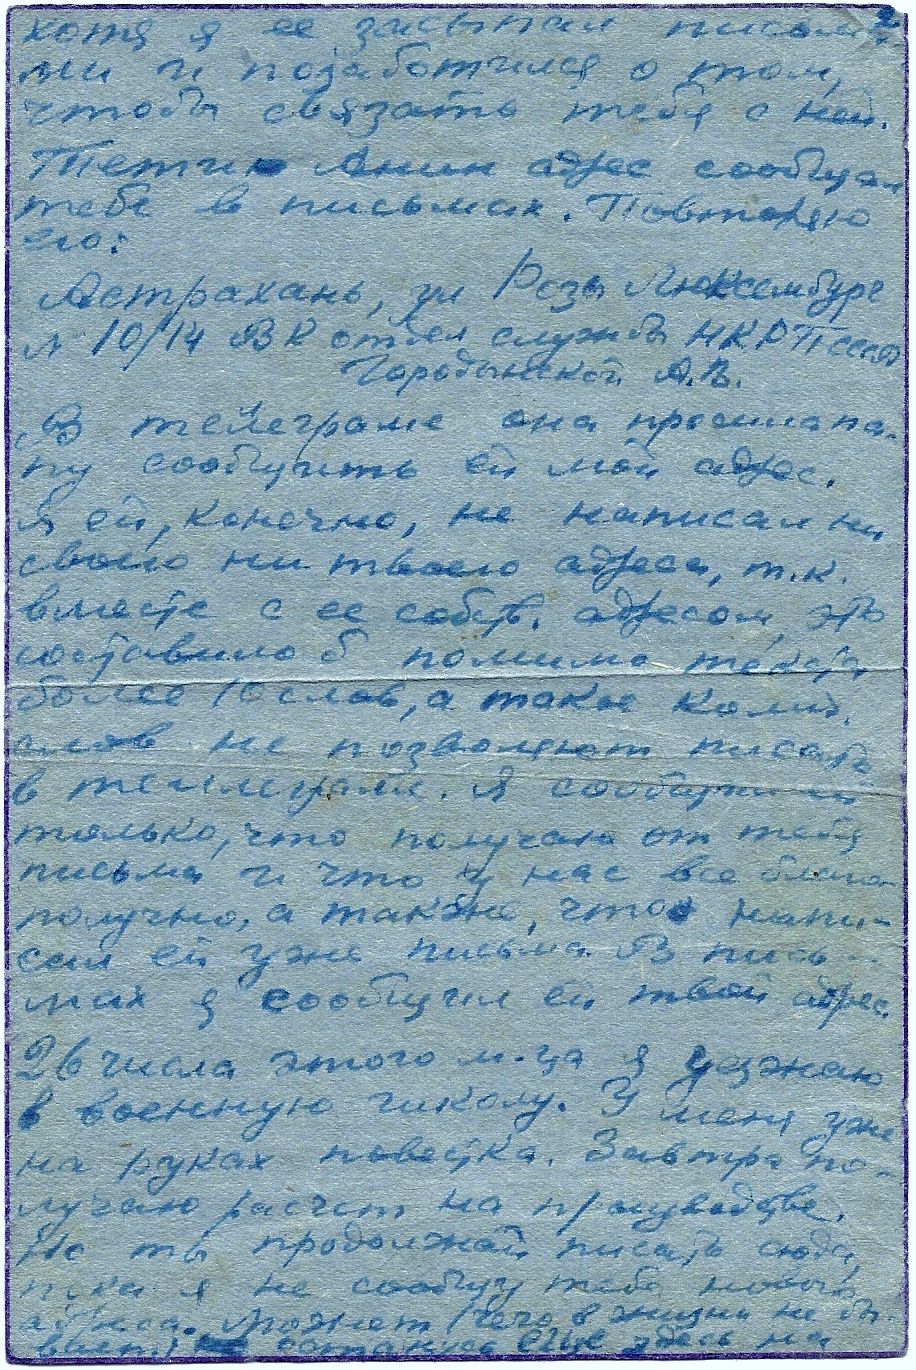 2
хотя я ее засыпал письма-
ми и позаботился о том,
чтобы связать тебя с ней.
Тетин Анин адрес сообщал
тебе в письмах. Повторяю
его:
Астрахань, ул Розы Люксембург
№ 10/14 ВК отдел службы
Городынской А.В.
В телеграме она просила па-
пу сообщить ей мой адрес.
Я ей, конечно, не написал ни
своего ни твоего адреса, т.к.
вместе с ее собств. адресом, это
составило б помимо текста
более 10 слов, а такое колич.
слов не позволяют писать
в телеграме. Я сообщил ей
только, что получаю от тебя
письма и что у нас все благо-
получно, а также, что напи-
сал ей уже письма. В пись-
мах я сообщил ей твой адрес.
26 числа этого м-ца я уезжаю
в военную школу. У меня уже
на руках повестка. Завтра по-
лучаю расчет на производстве.
Но ты продолжай писать сюда,
пока я не сообщу тебе новый
адреса. Может (чего в жизни не бы-
вает) останусь еще здесь на